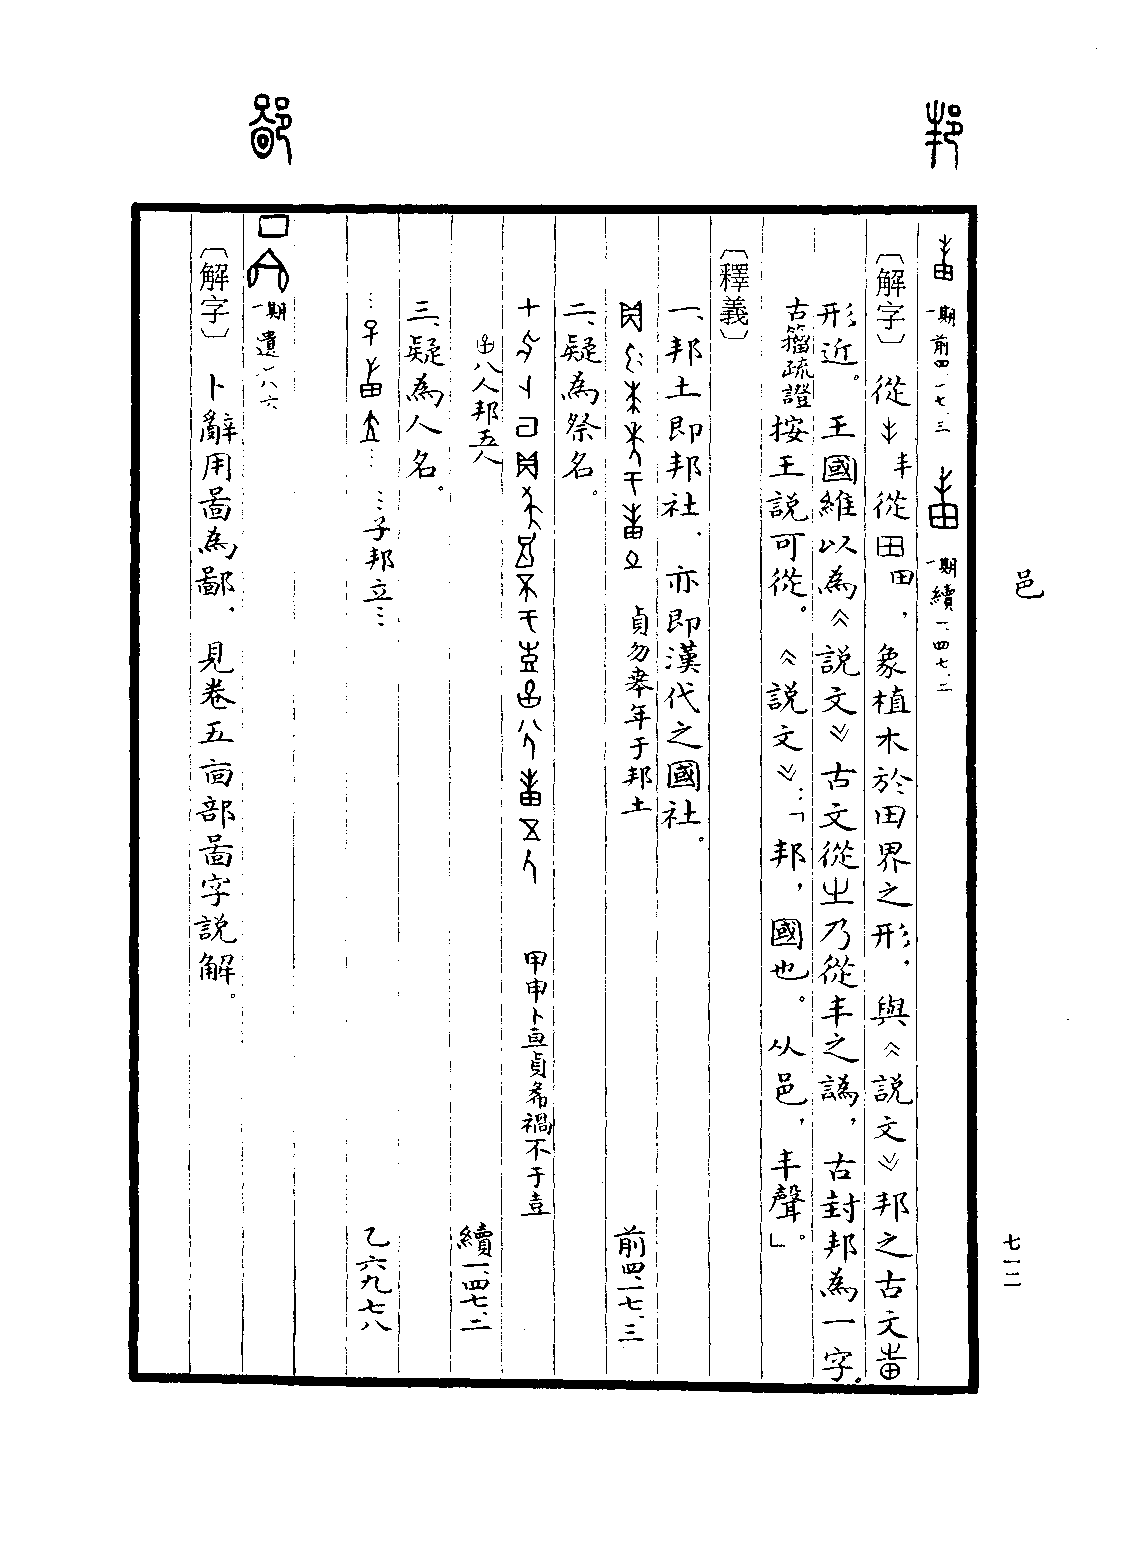 邦
鄙
一期前四·一七·三 一期續一·四七·二
〔解字〕從丰從田田，象植木於田界之形，與《說文》邦之古文
形近。王國維以為《說文》古文從㞢乃從丰之譌，古封邦為一字。
古籀疏證 按王說可從。《說文》：「邦，國也。从邑，丰聲。」
〔釋義〕
一、邦土即邦社，亦即漢代之國社。
貞勿𠦪年于邦土 前四·一七·三
二、疑為祭名。
甲申卜亘貞希禍不于壴
八人邦五人 續一·四七·二
三、疑為人名。
…子邦立… 乙六九七八
一期遺一八六
〔解字〕卜辭用啚為鄙，見卷五㐭部啚字說解。
邑
七一二